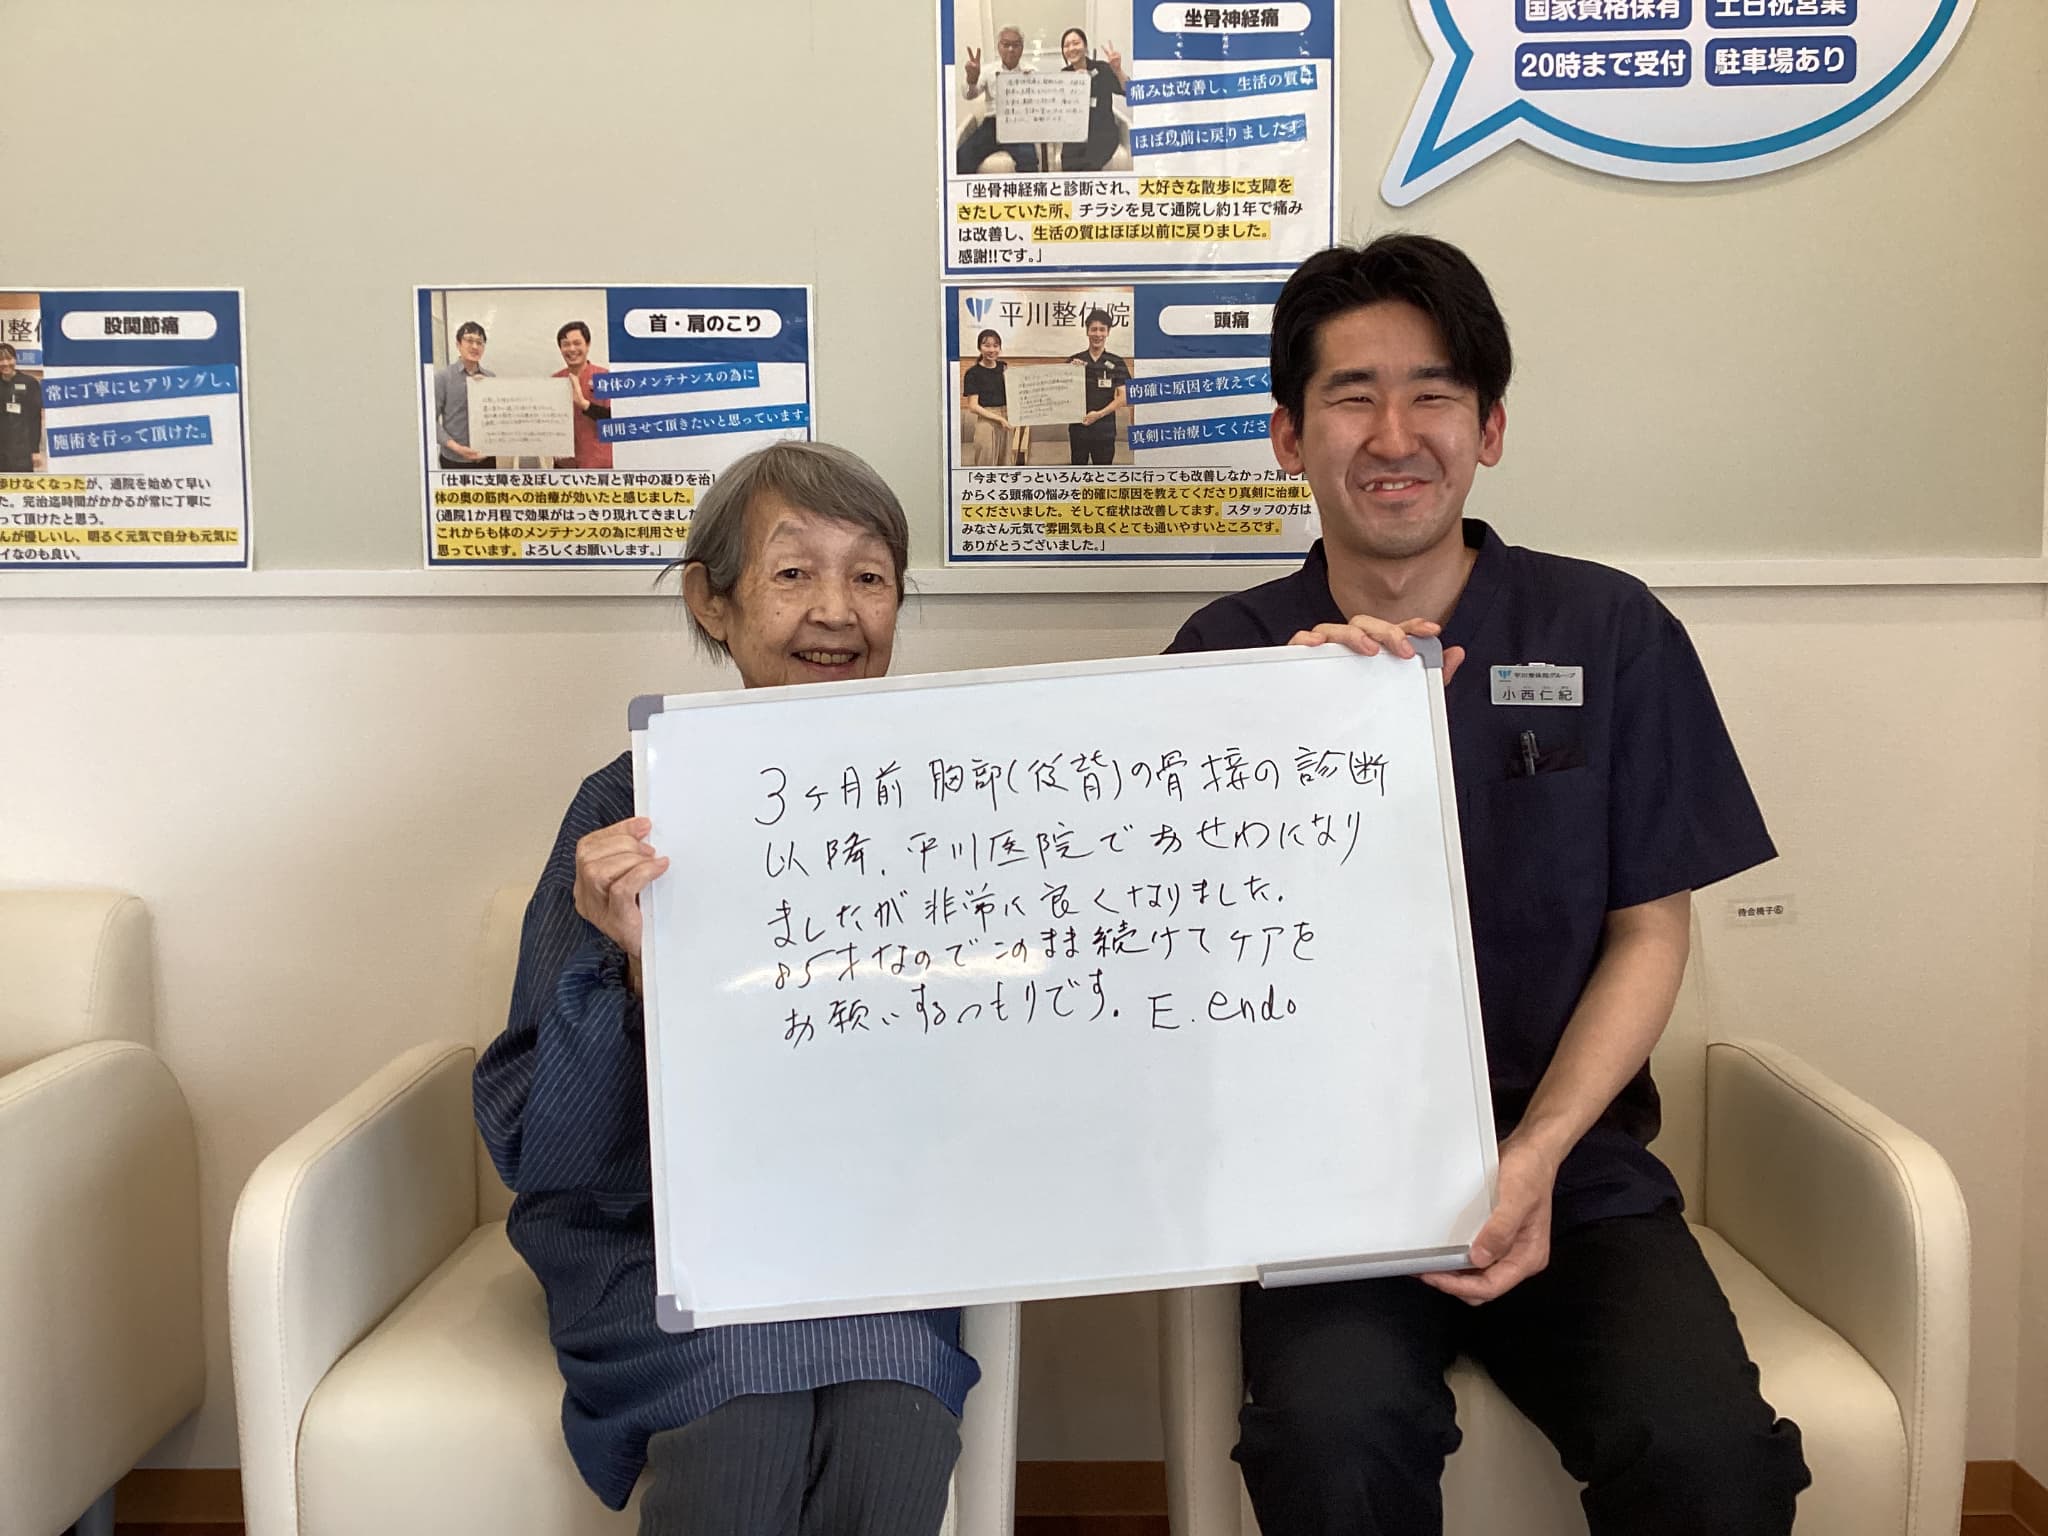 国家資格保有
土日祝営業
20時まで受付
駐車場あり
坐骨神経痛
痛みは改善し、生活の質は
ほぼ以前に戻りました
「坐骨神経痛と診断され、大好きな散歩に支障を
きたしていた所、チラシを見て通院し約1年で痛み
は改善し、生活の質はほぼ以前に戻りました。
感謝!!です。」
股関節痛
常に丁寧にヒアリングし、
施術を行って頂けた。
歩けなくなったが、通院を始めて早い
た。完治迄時間がかかるが常に丁寧に
って頂けたと思う。
んが優しいし、明るく元気で自分も元気に
イなのも良い。
首・肩のこり
身体のメンテナンスの為に
利用させて頂きたいと思っています。
「仕事に支障を及ぼしていた肩と背中の凝りを治し
体の奥の筋肉への治療が効いたと感じました。
(通院1か月程で効果がはっきり現れてきました
これからも体のメンテナンスの為に利用させ
思っています。よろしくお願いします。」
平川整体院
頭痛
的確に原因を教えてく
真剣に治療してくださ
「今までずっといろんなところに行っても改善しなかった肩と首
からくる頭痛の悩みを的確に原因を教えてくださり真剣に治療し
てくださいました。そして症状は改善してます。スタッフの方は
みなさん元気で雰囲気も良くとても通いやすいところです。
ありがとうございました。」
平川整体院グループ
小西仁紀
待合椅子⑥
3ヶ月前胸部(後背)の骨接の診断
以降、平川医院でおせわになり
ましたが非常に良くなりました。
85才なのでこのまま続けてケアを
お願いするつもりです。E. endo